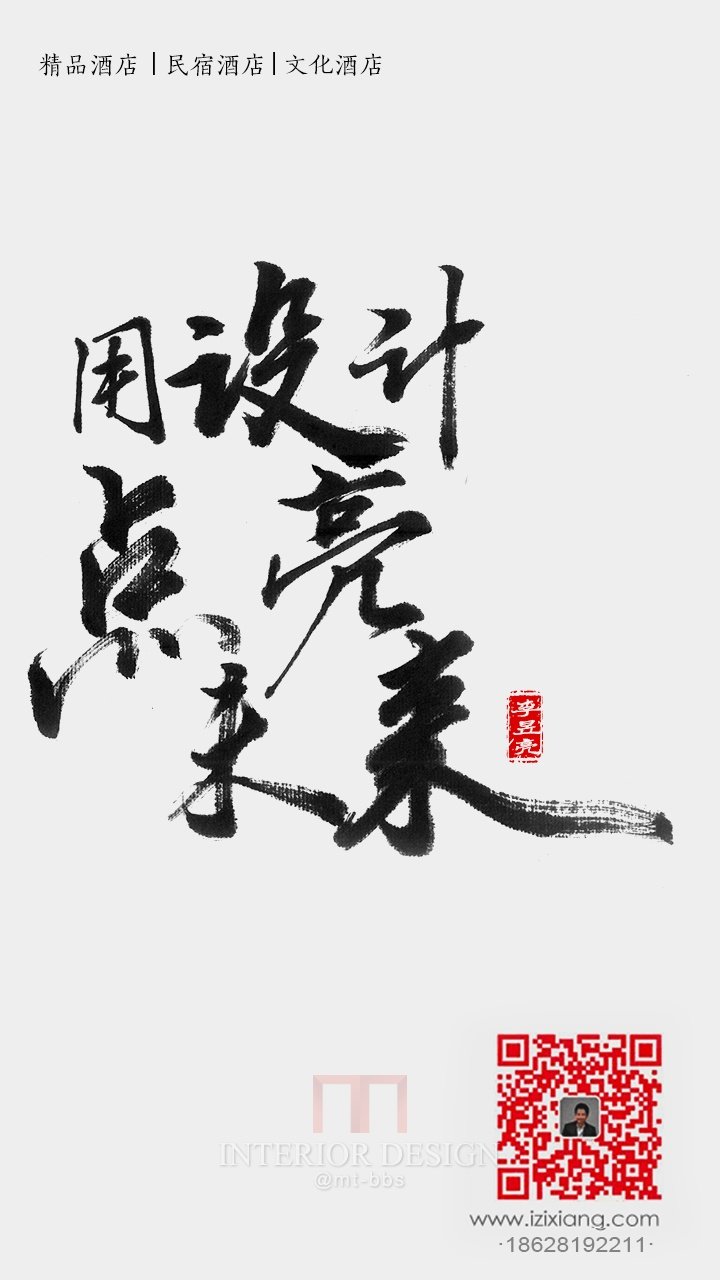 精品酒店 | 民宿酒店 | 文化酒店
用设计
点亮
未来
李昱亮
INTERIOR DESIGN
@mt-bbs
www.izixiang.com
·18628192211·